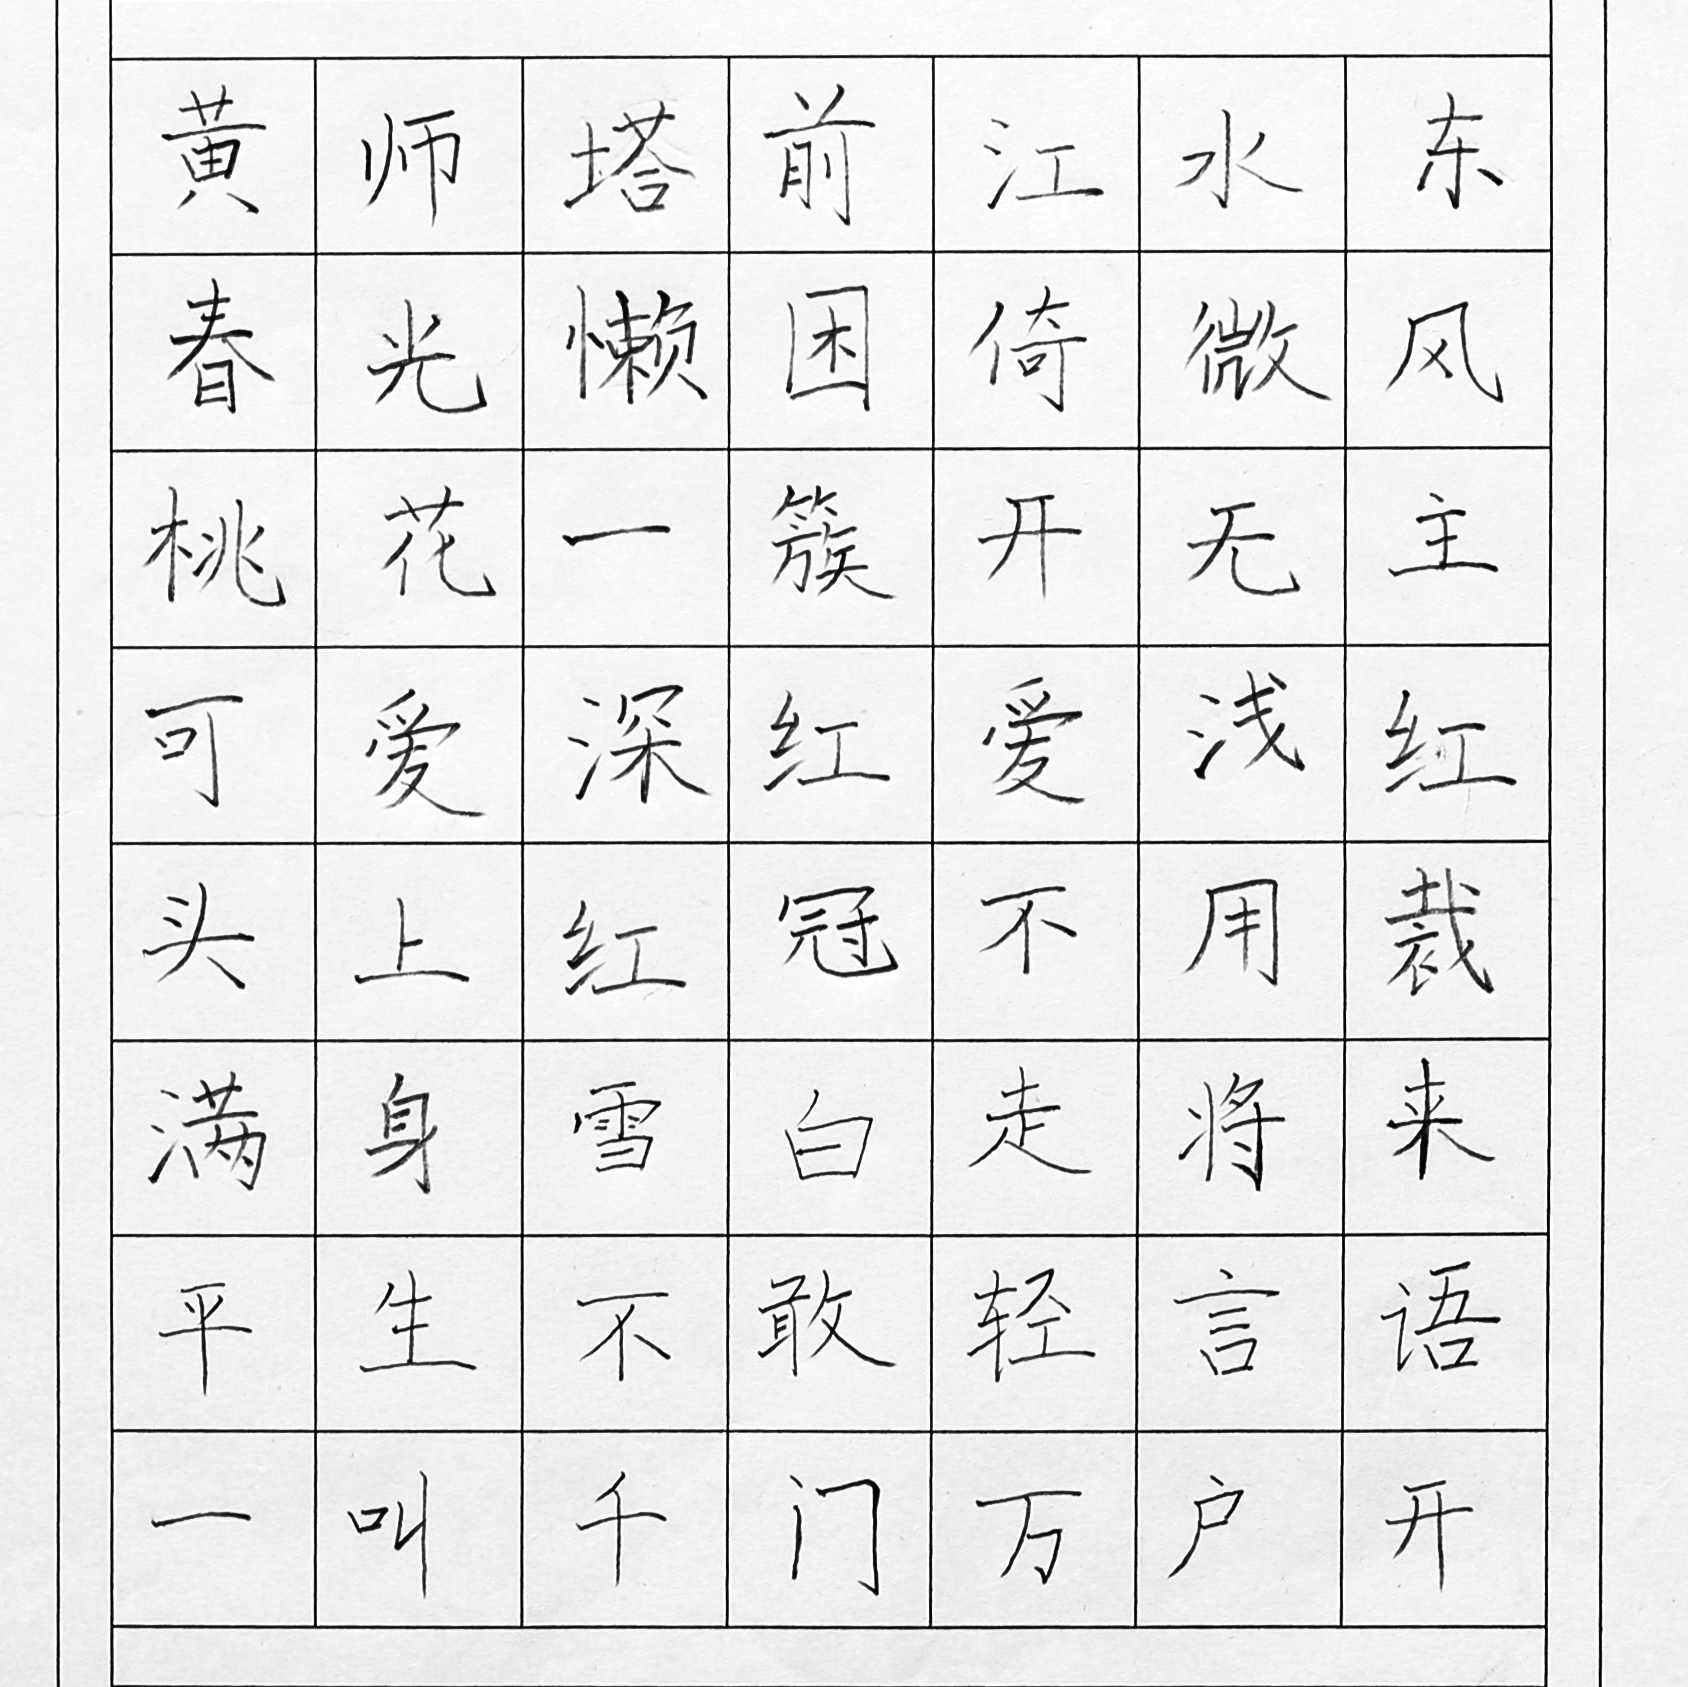 黄师塔前江水东
春光懒困倚微风
桃花一簇开无主
可爱深红爱浅红
头上红冠不用裁
满身雪白走将来
平生不敢轻言语
一叫千门万户开